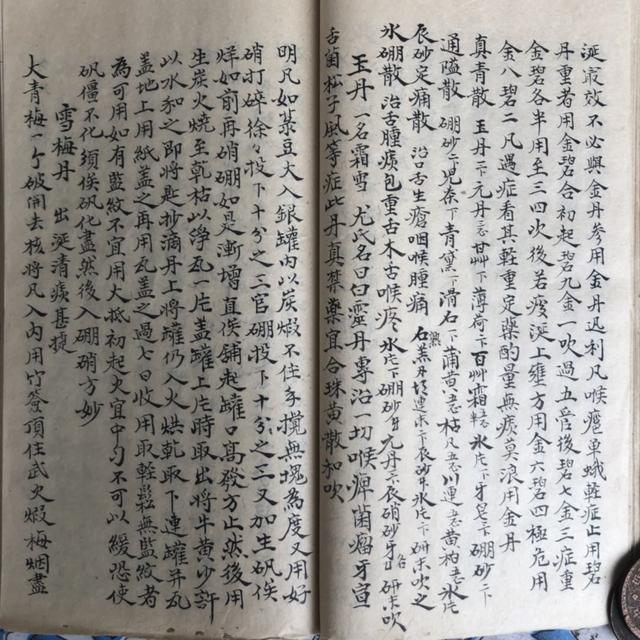 涎最效不必與金丹參用金丹迅利凡喉癰單蛾輕症止用碧
丹重者用金碧合初起碧九金一吹過五管後碧七金三症重
金碧各半用至三四次後若痰涎上壅方用金六碧四極危用
金八碧二凡遇症看其輕重定藥酌量無痰莫浪用金丹
真青散 玉丹 元丹 甘草 薄荷 百艸霜 氷片 牙皂 硼砂
通隘散 硼砂 兒茶 青黛 滑石 蒲黃 枯凡 川連 黃柏 氷片
辰砂定痛散 治口舌生瘡咽喉腫痛 氷片 研末吹之
氷硼散 治舌腫痰包重舌木舌喉疼 氷片 硼砂 元丹 硝砂 研末吹
玉丹 一名霜雪 尤氏名曰靈丹專治一切喉痺菌瘤牙宣
舌菌松子風等症此丹真禁藥宜合珠黃散加吹
明凡如菉豆大入銀罐內以炭煅不住手攪無塊為度又用好
硝打碎徐々投下十分之三官硼投下十分之三又加生矾俟
烊如前再硝硼如是漸增直俟鋪起罐口高發方止然後用
生炭火燒至乹枯以淨瓦一片蓋罐上片時取出將牛黃少許
以水和之即將匙抄滴丹上將罐仍入火烘乾取下連罐并瓦
蓋地上用紙蓋之再用瓦蓋之過七日收用取輕鬆無藍紋者
為可用如有藍紋不宜用大抵初起火宜中勻不可以緩恐使
矾僵不化須俟矾化盡然後入硼硝方妙
雪梅丹 出涎清痰甚捷
大青梅一个破開去核將凡入內用竹簽頂住武火煅梅烟盡